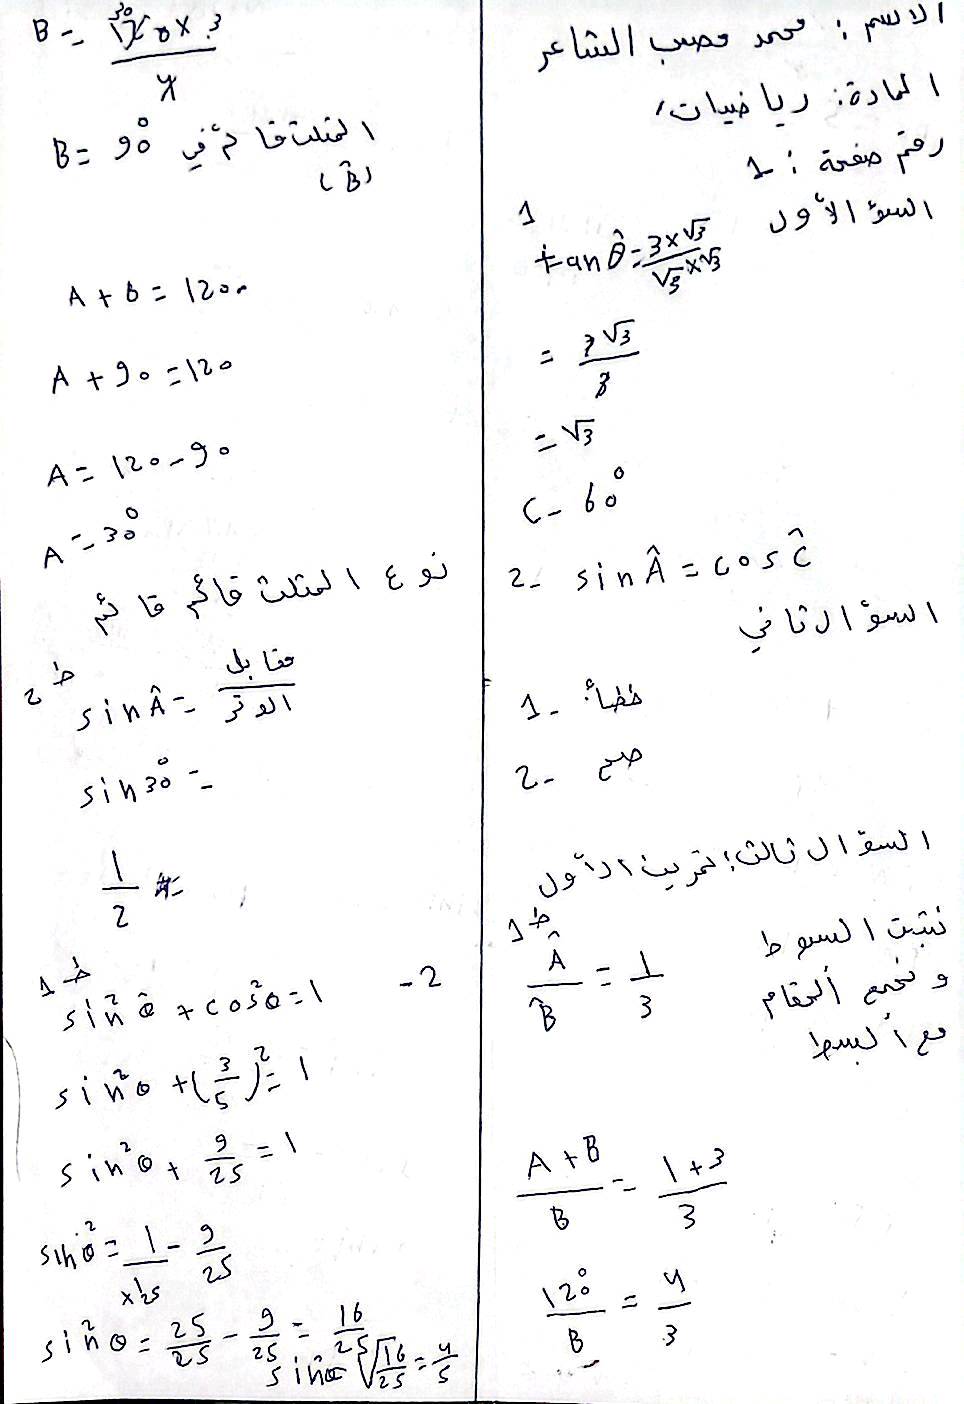 الاسم : محمد مصعب الشاعر
المادة: رياضيات،
رقم صفحة : 1
السؤالأول
1
tan θ̂ = 3×√3 / √3×√3
= 3√3 / 3
= √3
C = 60°
2- sin Â = cos Ĉ
السؤالثاني
1- خطأ:
2- صح
السؤال ثالث: تمرين الأول
ط1
Â / B̂ = 1 / 3
نثبت البسوط
و نجمع المقام
مع ألبسط
A + B / B = 1+3 / 3
120° / B = 4 / 3
B = 120 × 3 / 4
30
B = 90° المثلث قائم في
(B̂)
A + B = 120
A + 90 = 120
A = 120 - 90
A = 30°
نوع المثلث قائم قائم
ط 2
sin Â = مقابل / الوتر
sin 30° =
1 / 2
ط 1
sin² θ̂ + cos² θ = 1 - 2
sin² θ + (3/5)² = 1
sin² θ + 9/25 = 1
sin² θ = 1 / ×25 - 9/25
sin² θ = 25/25 - 9/25 = 16/25
sin θ = √16/25 = 4/5